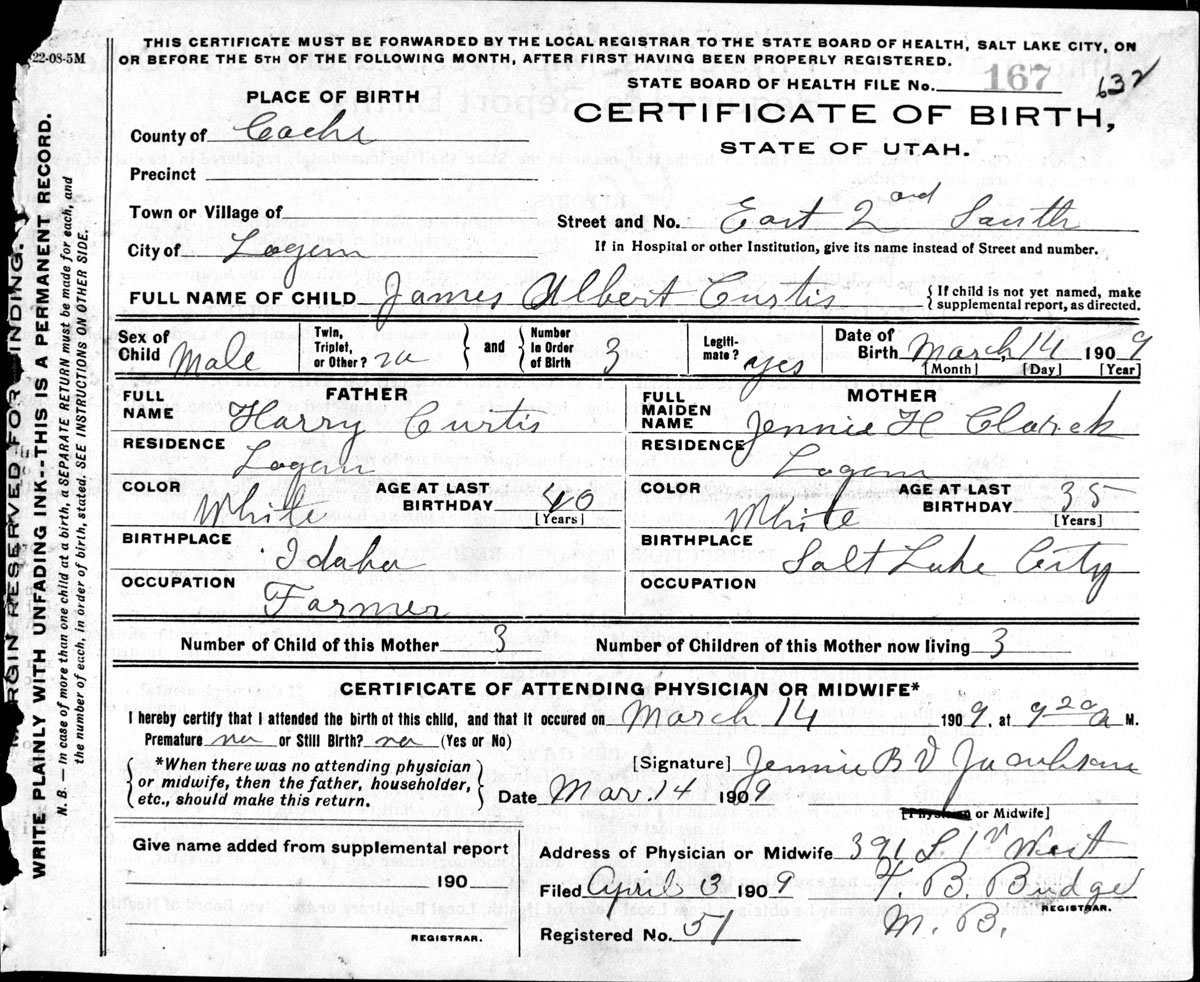 22-08-5M
THIS CERTIFICATE MUST BE FORWARDED BY THE LOCAL REGISTRAR TO THE STATE BOARD OF HEALTH, SALT LAKE CITY, ON
OR BEFORE THE 5TH OF THE FOLLOWING MONTH, AFTER FIRST HAVING BEEN PROPERLY REGISTERED.
STATE BOARD OF HEALTH FILE No. 167 632
PLACE OF BIRTH
CERTIFICATE OF BIRTH,
STATE OF UTAH.
County of Cache
Precinct
Town or Village of
Street and No. East 2nd South
City of Logan
If in Hospital or other Institution, give its name instead of Street and number.
FULL NAME OF CHILD James Albert Curtis { If child is not yet named, make
supplemental report, as directed.
Sex of Child Male Twin, Triplet, or Other? no } and { Number in Order of Birth 3 Legiti- mate? yes Date of Birth March 14 1909
[Month] [Day] [Year]
FATHER
FULL NAME Harry Curtis
RESIDENCE Logan
COLOR White AGE AT LAST BIRTHDAY 40 [Years]
BIRTHPLACE Idaho
OCCUPATION Farmer
MOTHER
FULL MAIDEN NAME Jennie H Clarek
RESIDENCE Logan
COLOR White AGE AT LAST BIRTHDAY 35 [Years]
BIRTHPLACE Salt Lake City
OCCUPATION
Number of Child of this Mother 3 Number of Children of this Mother now living 3
CERTIFICATE OF ATTENDING PHYSICIAN OR MIDWIFE*
I hereby certify that I attended the birth of this child, and that it occured on March 14 1909, at 9 20 a M.
Premature no or Still Birth? no (Yes or No)
{ *When there was no attending physician
or midwife, then the father, householder,
etc., should make this return. }
[Signature] Jennie B
Date Mar. 14 1909
[Physician or Midwife]
Give name added from supplemental report
190
REGISTRAR.
Address of Physician or Midwife 391 1st West
Filed April 3 1909 F. B. Budge
REGISTRAR.
Registered No. 37 M. B.
MARGIN RESERVED FOR BINDING.
WRITE PLAINLY WITH UNFADING INK--THIS IS A PERMANENT RECORD.
N. B. — In case of more than one child at a birth, a SEPARATE RETURN must be made for each, and
the number of each, in order of birth, stated. SEE INSTRUCTIONS ON OTHER SIDE.